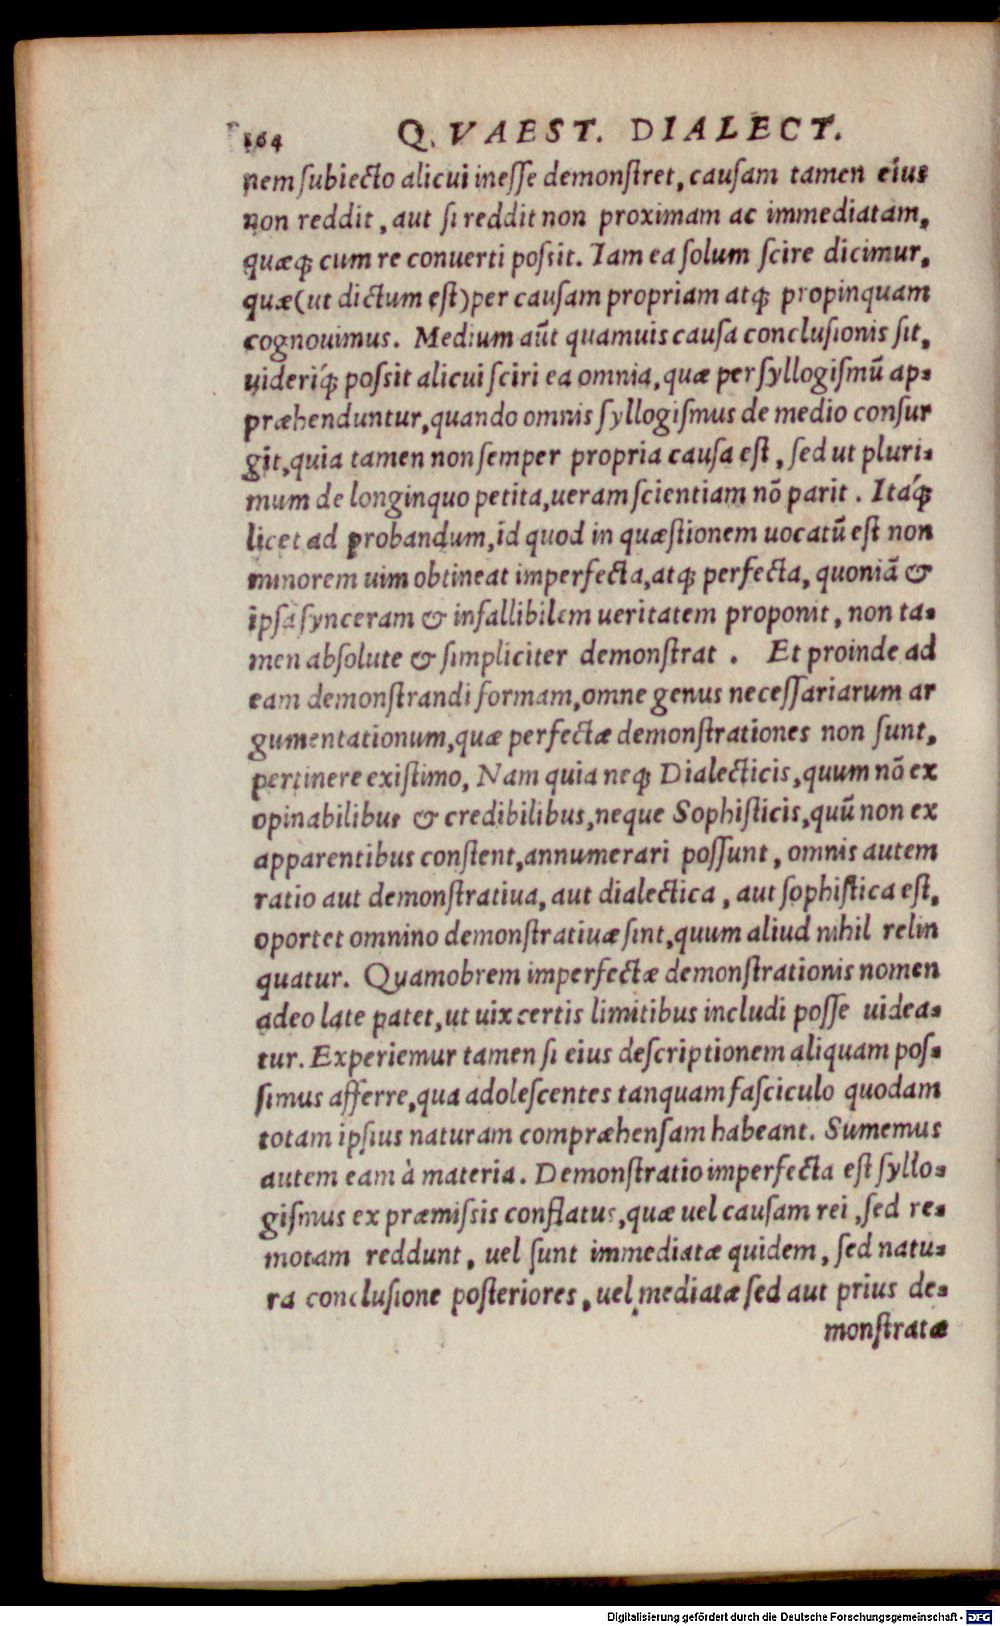 164 Q. VAEST. DIALECT.
nem ſubiecto alicui ineſſe demonſtret, cauſam tamen eius
non reddit, aut ſi reddit non proximam ac immediatam,
quæq́; cum re conuerti poſsit. Iam ea ſolum ſcire dicimur,
quæ (ut dictum eſt) per cauſam propriam atq́; propinquam
cognouimus. Medium aūt quamuis cauſa concluſionis ſit,
uideriq́; poſsit alicui ſciri ea omnia, quæ per ſyllogiſmū ap-
præhenduntur, quando omnis ſyllogiſmus de medio conſur
git, quia tamen non ſemper propria cauſa eſt, ſed ut pluri-
mum de longinquo petita, ueram ſcientiam nō parit. Itaq́;
licet ad probandum, id quod in quæſtionem uocatū eſt non
minorem uim obtineat imperfecta, atq́; perfecta, quoniā &
ipſa ſynceram & infallibilem ueritatem proponit, non ta-
men abſolute & ſimpliciter demonſtrat. Et proinde ad
eam demonſtrandi formam, omne genus neceſſariarum ar
gumentationum, quæ perfectæ demonſtrationes non ſunt,
pertinere exiſtimo, Nam quia neq́; Dialecticis, quum nō ex
opinabilibus & credibilibus, neque Sophiſticis, quū non ex
apparentibus conſtent, annumerari poſſunt, omnis autem
ratio aut demonſtratiua, aut dialectica, aut ſophiſtica eſt,
oportet omnino demonſtratiuæ ſint, quum aliud nihil relin
quatur. Quamobrem imperfectæ demonſtrationis nomen
adeo late patet, ut uix certis limitibus includi poſſe uidea-
tur. Experiemur tamen ſi eius deſcriptionem aliquam poſ-
ſimus afferre, qua adoleſcentes tanquam faſciculo quodam
totam ipſius naturam compræhenſam habeant. Sumemus
autem eam à materia. Demonſtratio imperfecta eſt ſyllo-
giſmus ex præmiſsis conflatus, quæ uel cauſam rei, ſed re-
motam reddunt, uel ſunt immediatæ quidem, ſed natu-
ra concluſione poſteriores, uel mediatæ ſed aut prius de-
monſtratæ
Digitalisierung gefördert durch die Deutsche Forschungsgemeinschaft - DFG